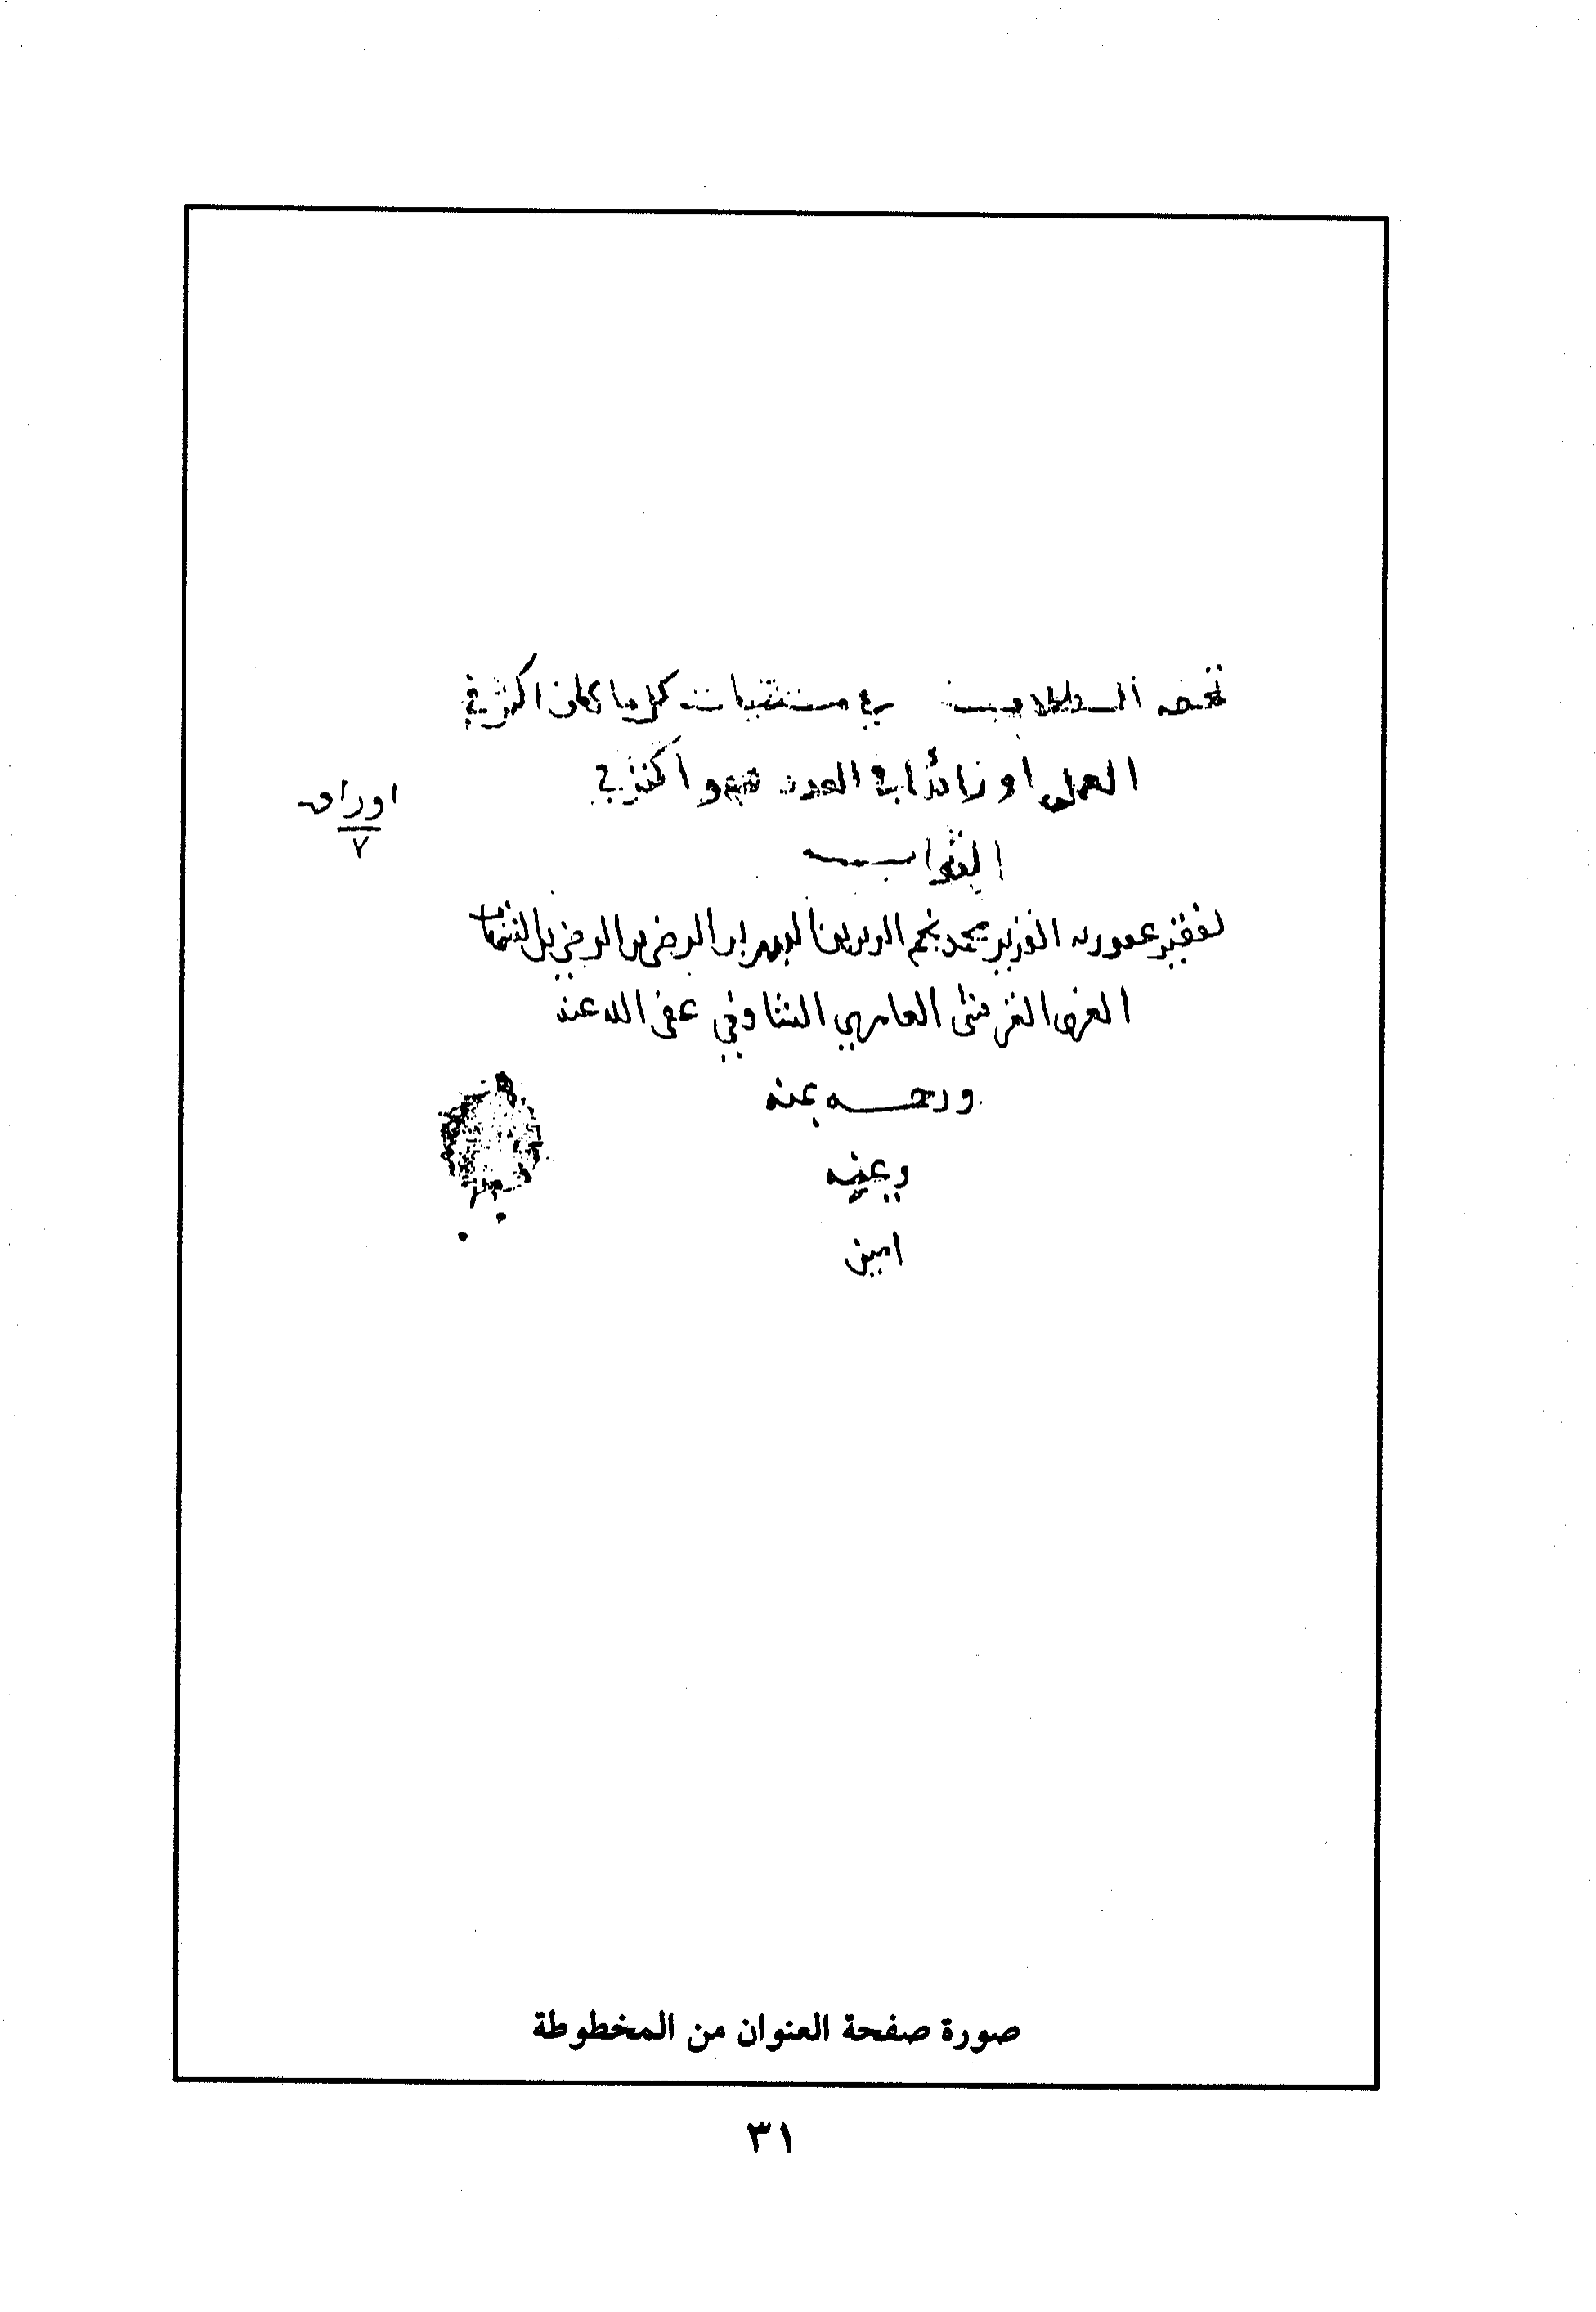 تحفه الطلاب في مستثنيات كل ما كان اكثر في
العمل او زائدا في العدد فهو اكثر في
الثواب
اوراق
٧
لفقير عفو ربه القدير محمد نجم الدين بن البدر بن الرضي بن الرضي بن الشهاب
الغزي القرشي العامري الشافعي عفى الله عنه
ورحمه بمنه
ويمنه
امين
صورة صفحة العنوان من المخطوطة
٣١